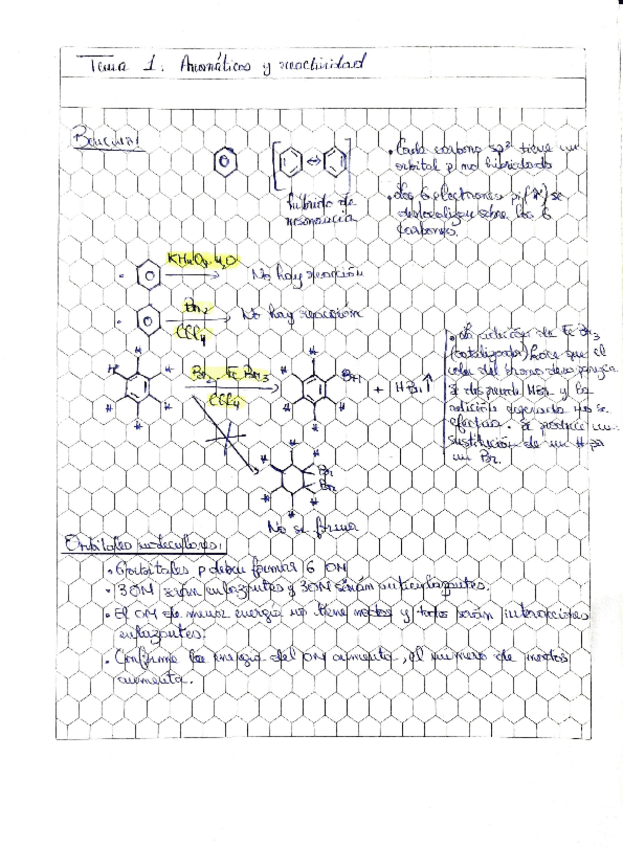 Tema 1. Aromáticos y reactividad
Benceno:
híbrido de
resonancia
• Cada carbono sp² tiene un
orbital p no hibridado
• Los 6 electrones pi (π) se
deslocalizan sobre los 6
carbonos.
KMnO₄, H₂O
No hay reacción
Br₂
CCl₄
No hay reacción
Br₂ FeBr₃
CCl₄
+ HBr ↑
Br
Br
No se forma
• La adición de FeBr₃
(catalizador) hace que el
color del bromo desaparezca
se desprende HBr y la
adición esperada no se
efectúa. Se produce un
sustitución de un H por
un Br.
Orbitales moleculares:
• 6 orbitales p deben formar 6 OM
• 3 OM serán enlazantes y 3 OM serán antienlazantes.
• El OM de menor energía no tiene nodos y todos serán interacciones
enlazantes.
• Conforme la energía del OM aumenta, el número de nodos
aumenta.